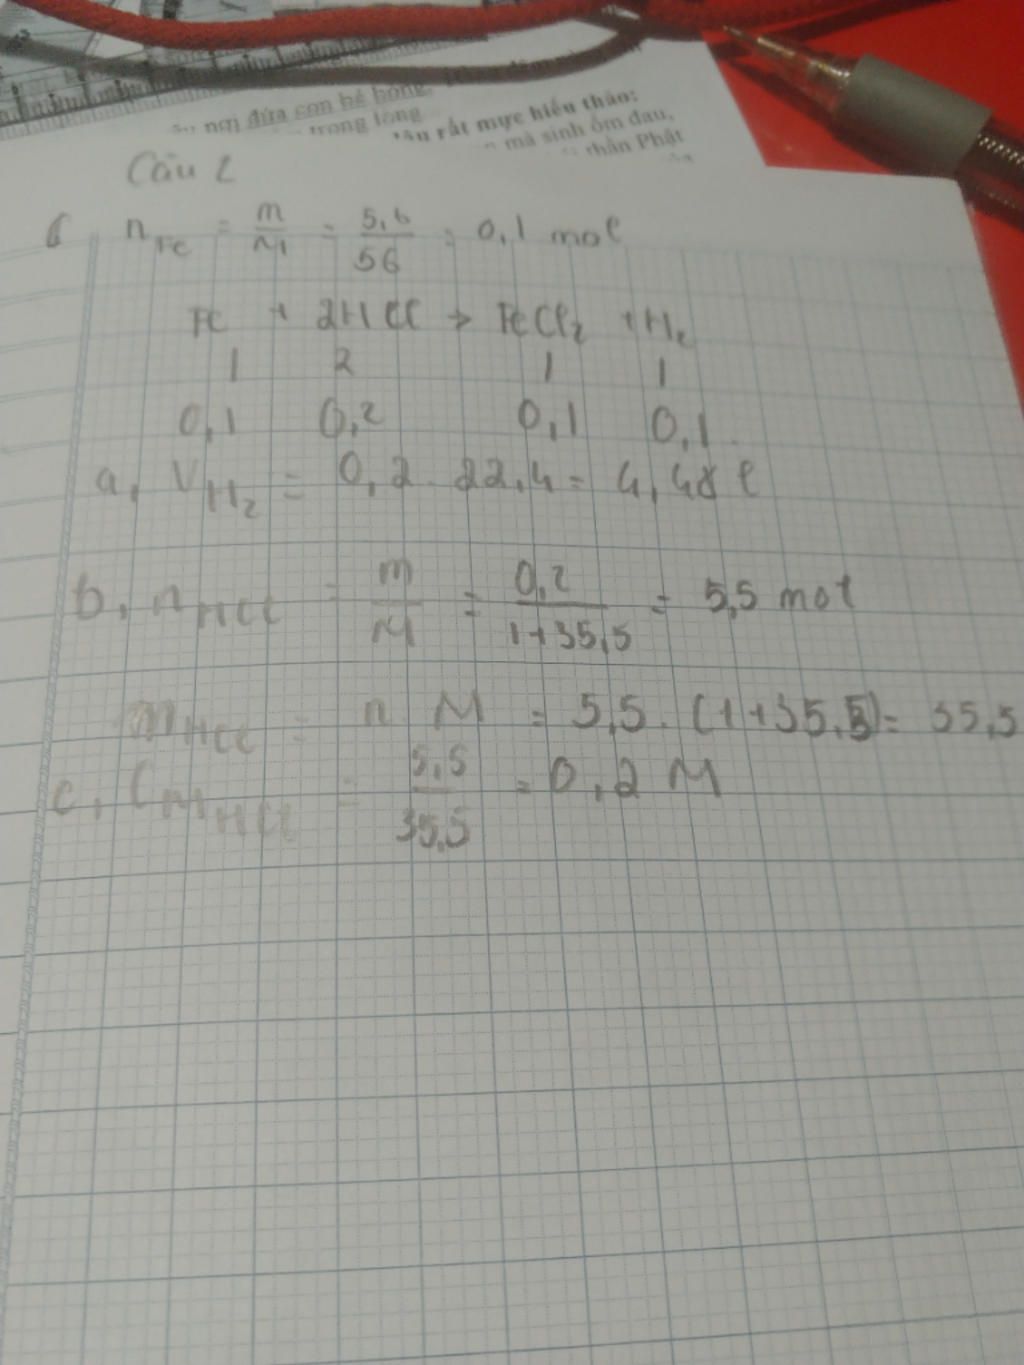 nơi đứa con bé bỏng.
trong lòng
rất mực hiếu thảo:
mà sinh ốm đau,
thần Phật
Câu 2
n Fe = m/M = 5,6/56 = 0,1 mol
Fe + 2HCl → FeCl2 + H2
1 2 1 1
0,1 0,2 0,1 0,1
a, V H2 = 0,2 . 22,4 = 4,48 l
b, n HCl = m/M = 0,2/1+35,5 = 5,5 mol
m HCl = n . M = 5,5 . (1+35,5) = 35,5
c, C M HCl = 5,5/35,5 = 0,2 M